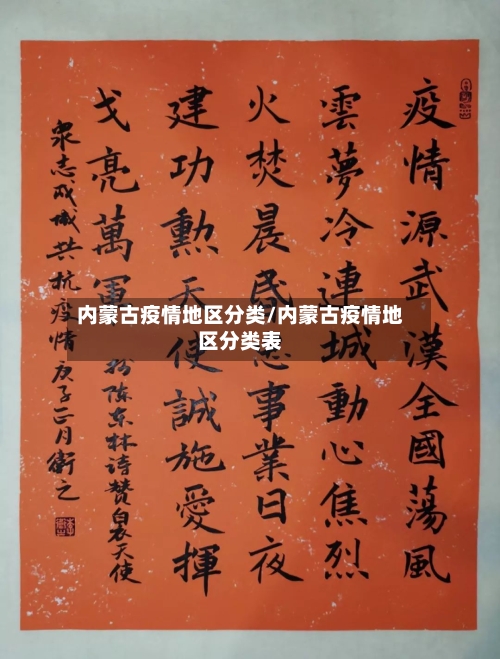 内蒙古疫情地区分类/内蒙古疫情地
区分类表
疫情源武漢全國蕩風
雲夢冷連城動心焦烈
火焚晨昏事業日夜
建功勳天使誠施愛揮
戈亮萬軍
陈东林诗赞白衣天使
衆志成城共抗疫情庚子正月衛之